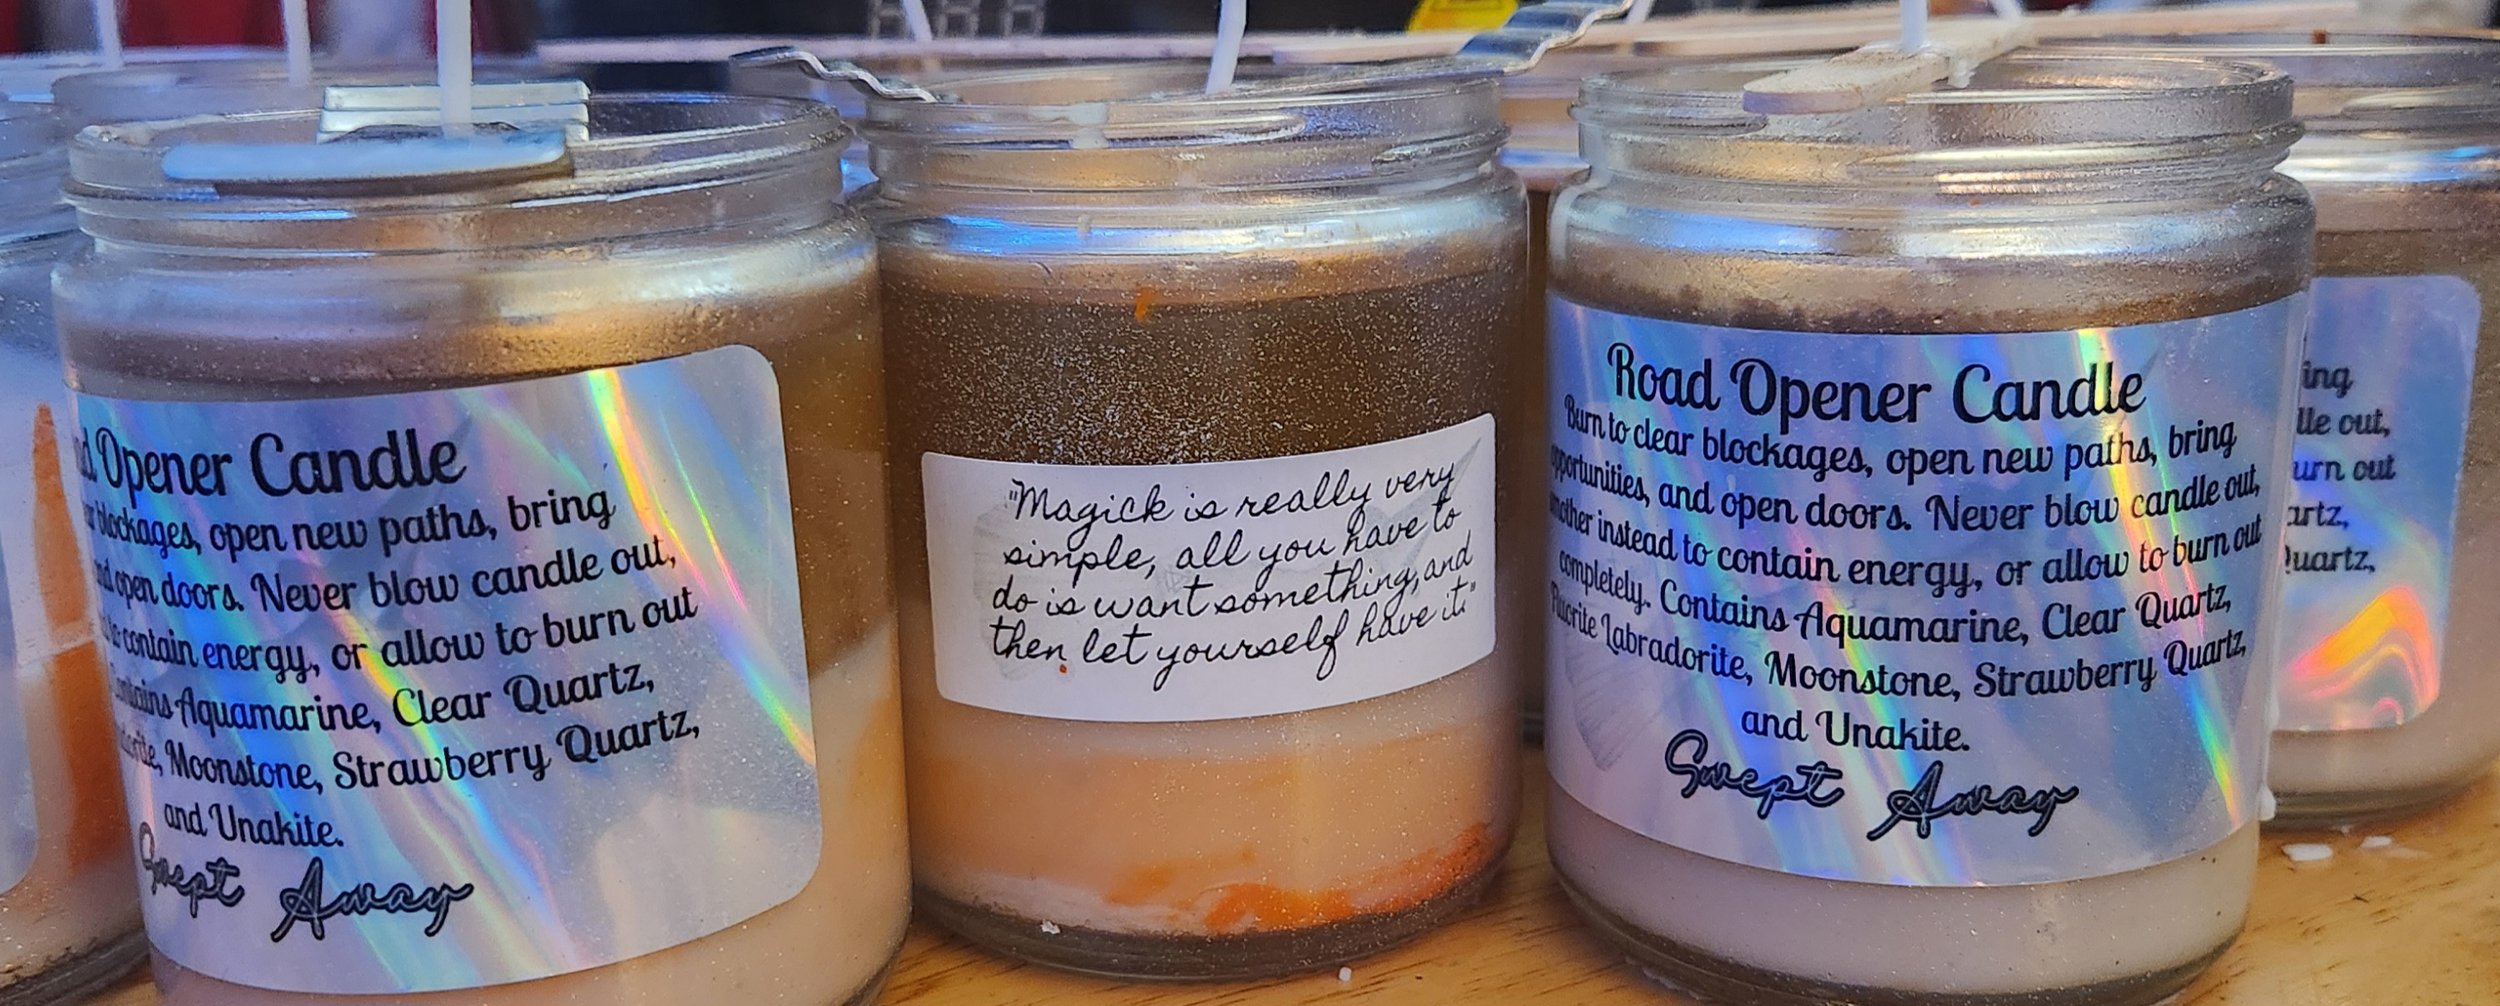 Opener Candle
blockages, open new paths, bring
open doors. Never blow candle out,
to contain energy, or allow to burn out
Contains Aquamarine, Clear Quartz,
Moonstone, Strawberry Quartz,
and Unakite.
Swept Away
"Magick is really very
simple, all you have to
do is want something, and
then let yourself have it."
Road Opener Candle
Burn to clear blockages, open new paths, bring
opportunities, and open doors. Never blow candle out,
instead to contain energy, or allow to burn out
completely. Contains Aquamarine, Clear Quartz,
Fluorite Labradorite, Moonstone, Strawberry Quartz,
and Unakite.
Swept Away
out,
out